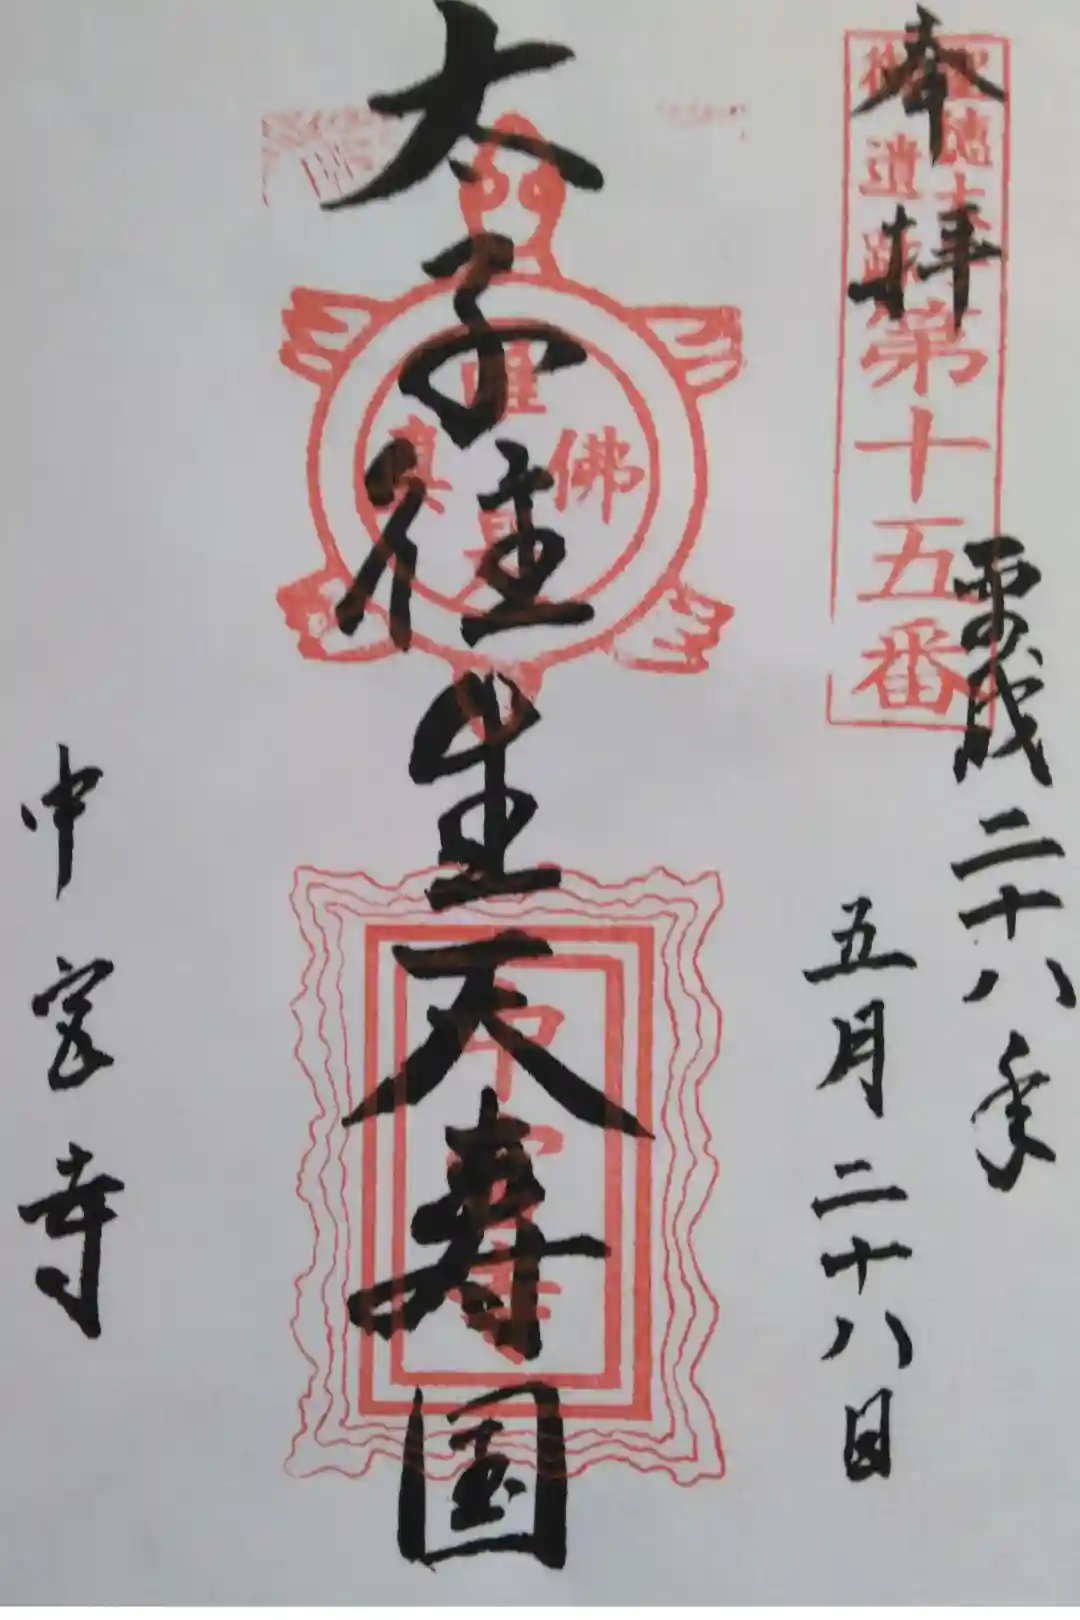 奉拝
聖徳太子
御遺跡
第十五番
平成二十八年
五月二十八日
太子往生天寿国
唯佛是眞
中宮寺
中宮寺